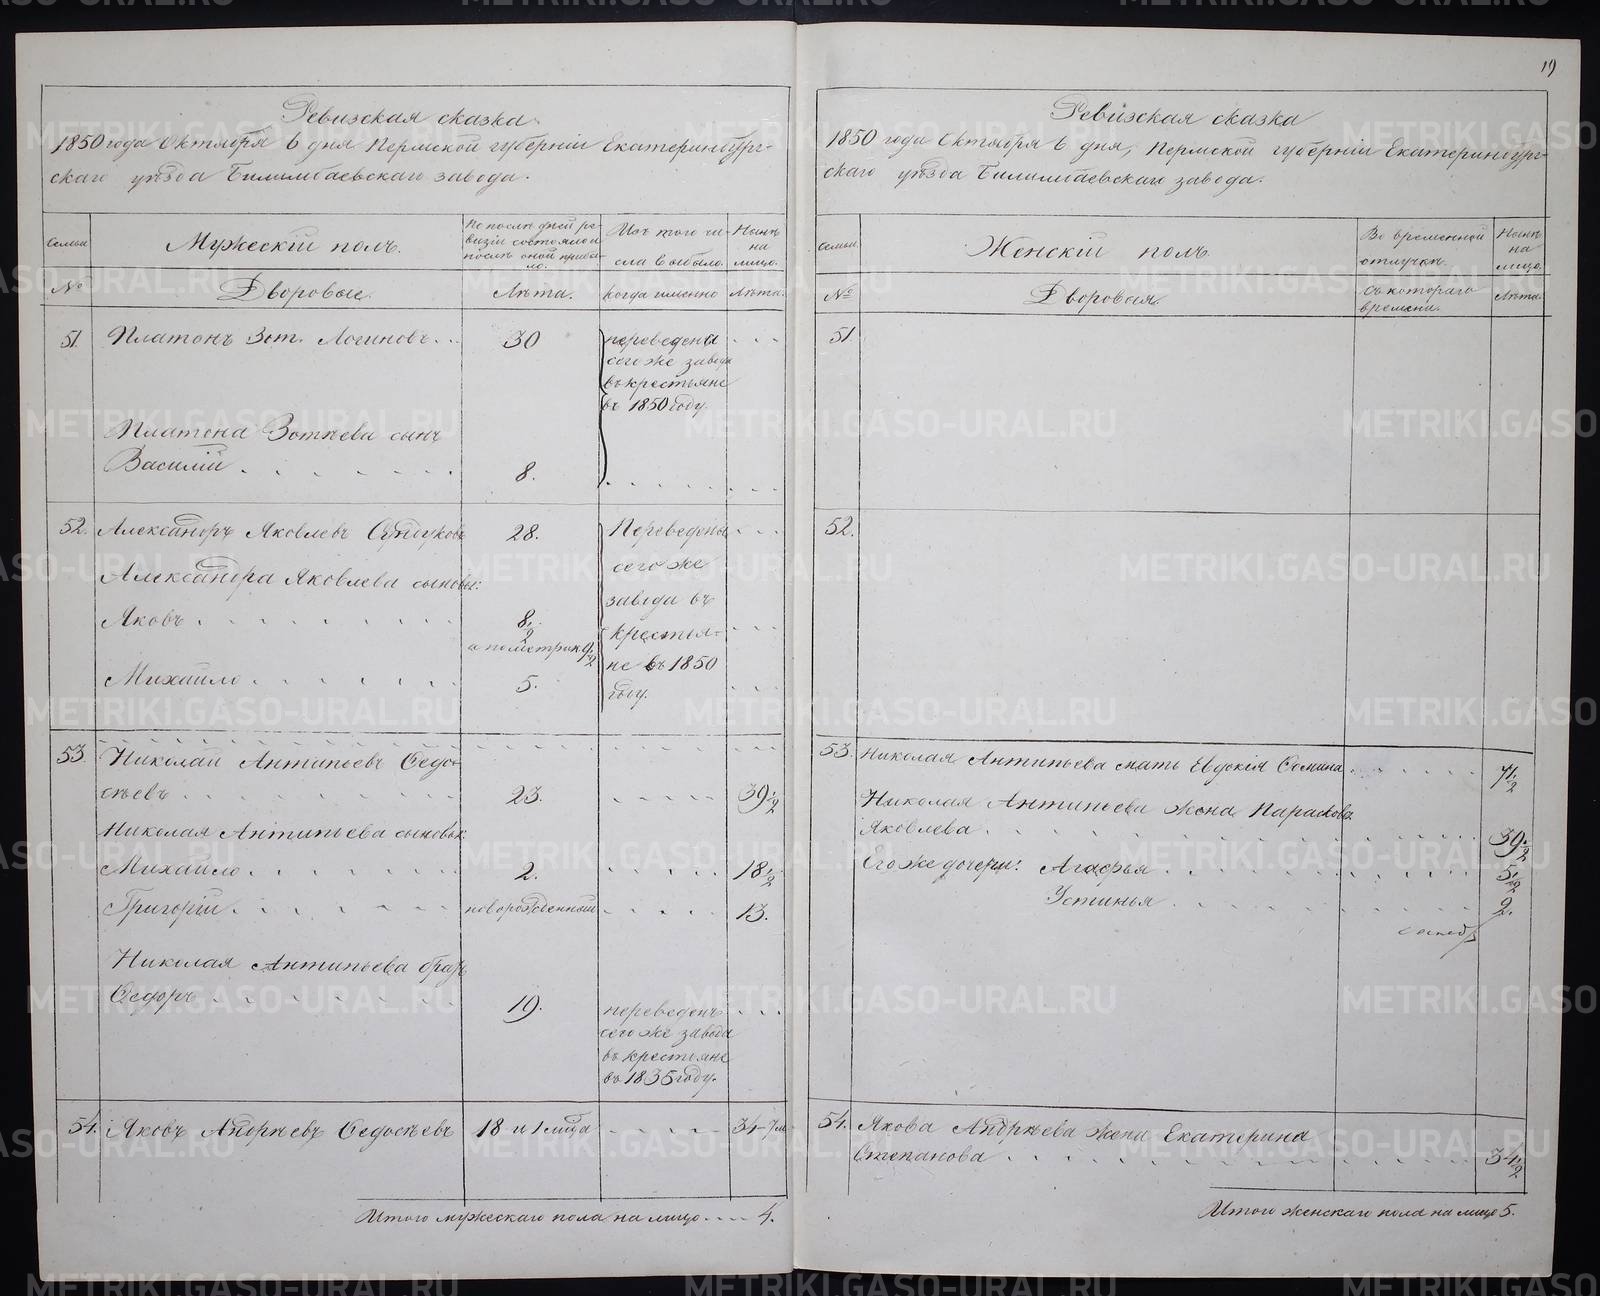 Ревизская сказка
1850 года Октября 6 дня Пермской губерніи Екатеринбург-
скаго уѣзда Билимбаевскаго завода.
Семьи
Мужескій полъ.
По послѣдней ре-
визіи состояло и
послѣ оной прибы-
ло.
Изъ того чи-
сла выбыло.
Нынѣ
на
лицо.
№
Дворовые.
Лѣта.
когда именно
Лѣта.
51.
Платонъ Зот. Логиновъ...
30
переведены
сего же завода
въ крестьяне
въ 1850 году.
Платона Зотѣева сынъ
Василій
8.
52.
Александръ Яковлевъ Сундуковъ
28.
Переведены
сего же
завода въ
крестья-
не въ 1850
году.
Александра Яковлева сыновья:
Яковъ
8 1/2
9 1/2
Михайло
5.
53.
Николай Антипьевъ Ѳедо-
сѣевъ
23.
39 1/2
Николая Антипьева сыновья:
Михайло
2.
18 1/2
Григорій
новорожденный
13.
Николая Антипьева братъ
Ѳедоръ
19.
переведенъ
сего же завода
въ крестьяне
въ 1835 году.
54.
Яковъ Андрѣевъ Ѳедосѣевъ
18 и 1 мѣсяца
34-7 м
Итого мужескаго пола на лицо .... 4.
19
Ревизская сказка
1850 года Октября 6 дня, Пермской губерніи Екатеринбург-
скаго уѣзда Билимбаевскаго завода.
Семьи
Женскій полъ.
Во временной
отлучкѣ.
Нынѣ
на
лицо.
№
Дворовыя.
Съ котораго
времени.
Лѣта.
51
52.
53.
Николая Антипьева мать Евдокія Ѳомина
71 1/2
Николая Антипьева жена Парасковья
Яковлева
39 1/2
Его же дочери: Агафья
5 1/2
Устинья
2.
54.
Якова Андрѣева жена Екатерина
Степанова
34 1/2
Итого женскаго пола на лицо 5.
METRIKI.GASO-URAL.RU